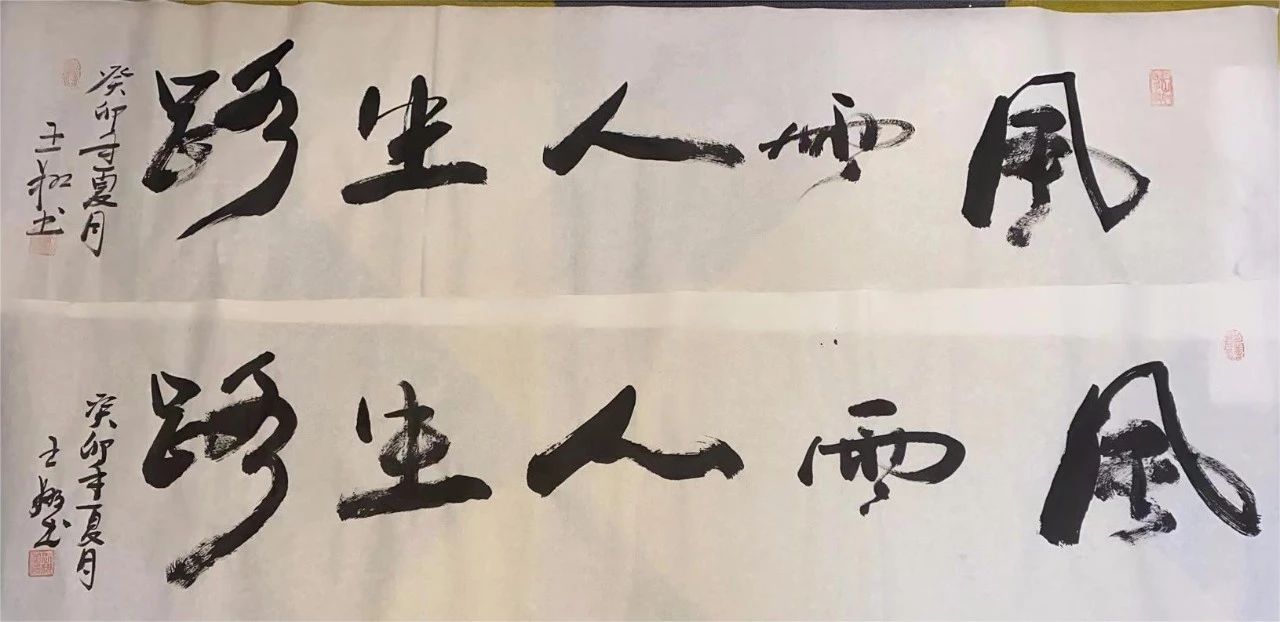 風雨人生路
癸卯年夏月
王书
風雨人生路
癸卯年夏月
王书